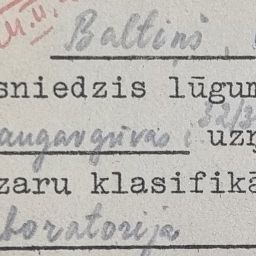 Baltiņš,
sniedzis lūgum
augavgrīvas i 32/3
uzņ
zaru klasifikā
boratorija